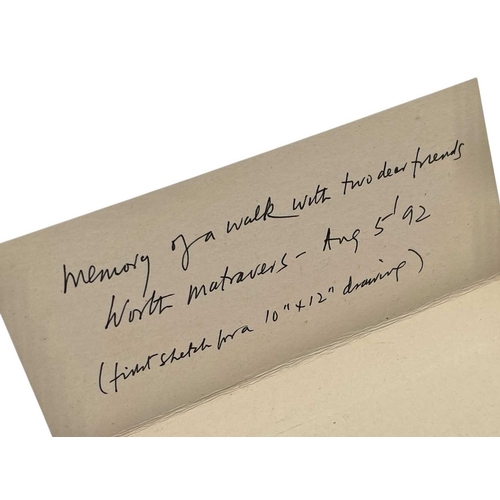 Memory of a walk with two dear friends
Worth Matravers - Aug 5' 92
(first sketch for a 10" x 12" drawing)